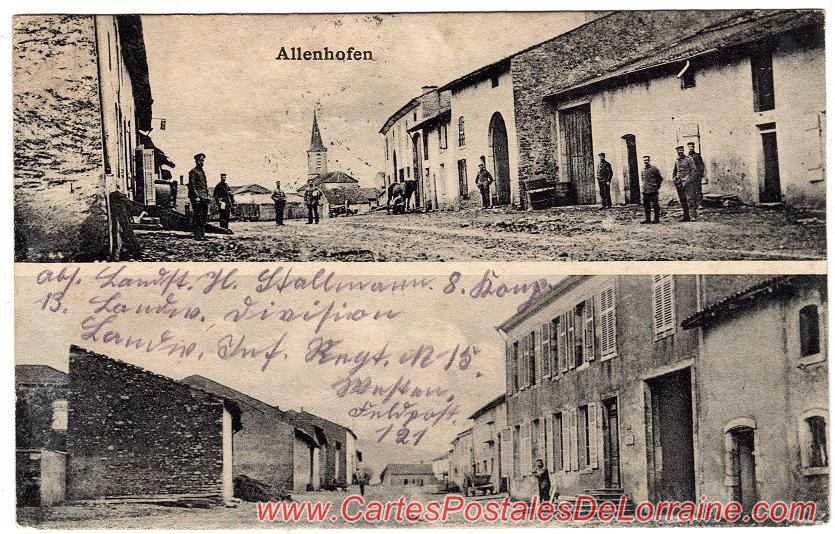 Allenhofen
Abs. Landst. H. Stallmann. 8. Komp.
13. Landw. Division
Landw. Inf. Regt. N 15.
Westen.
Feldpost.
121
www.CartesPostalesDeLorraine.com